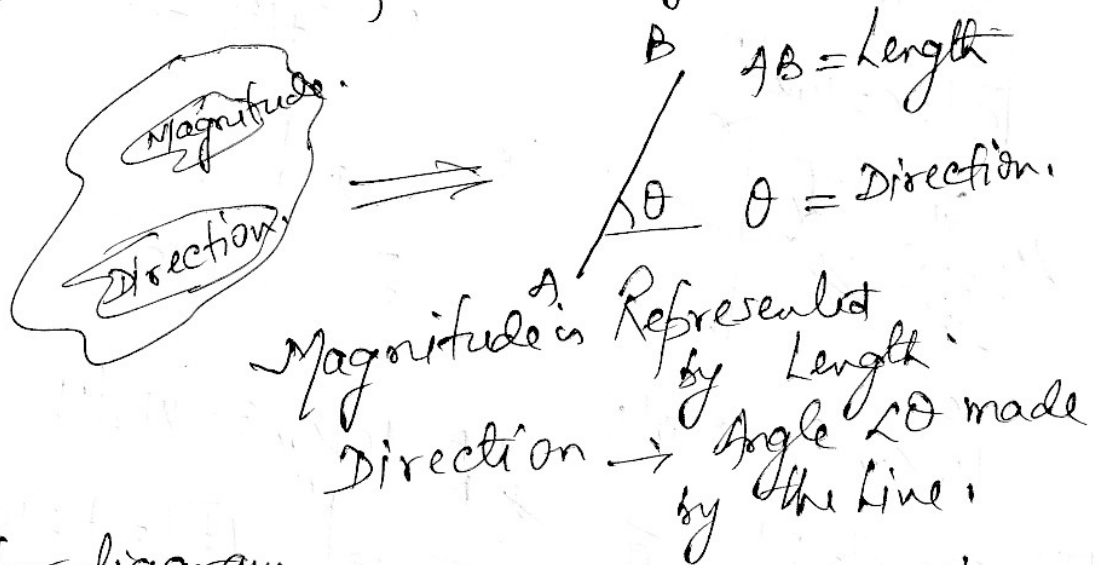 Magnitude.
Direction.
B
AB = Length
θ
θ = Direction.
A
Magnitude is Represented
by Length.
Direction → Angle ∠θ made
by the Line.
= diagram